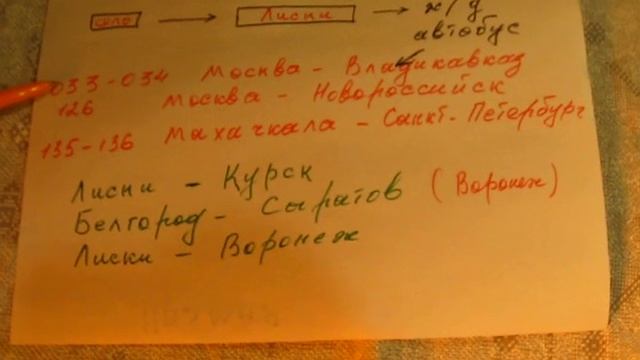 село → Лиски → ж/д
автобус
033-034 Москва - Владикавказ
126 Москва - Новороссийск
135-136 Махачкала - Санкт-Петербург
Лиски - Курск
Белгород - Сыратов (Воронеж)
Лиски - Воронеж